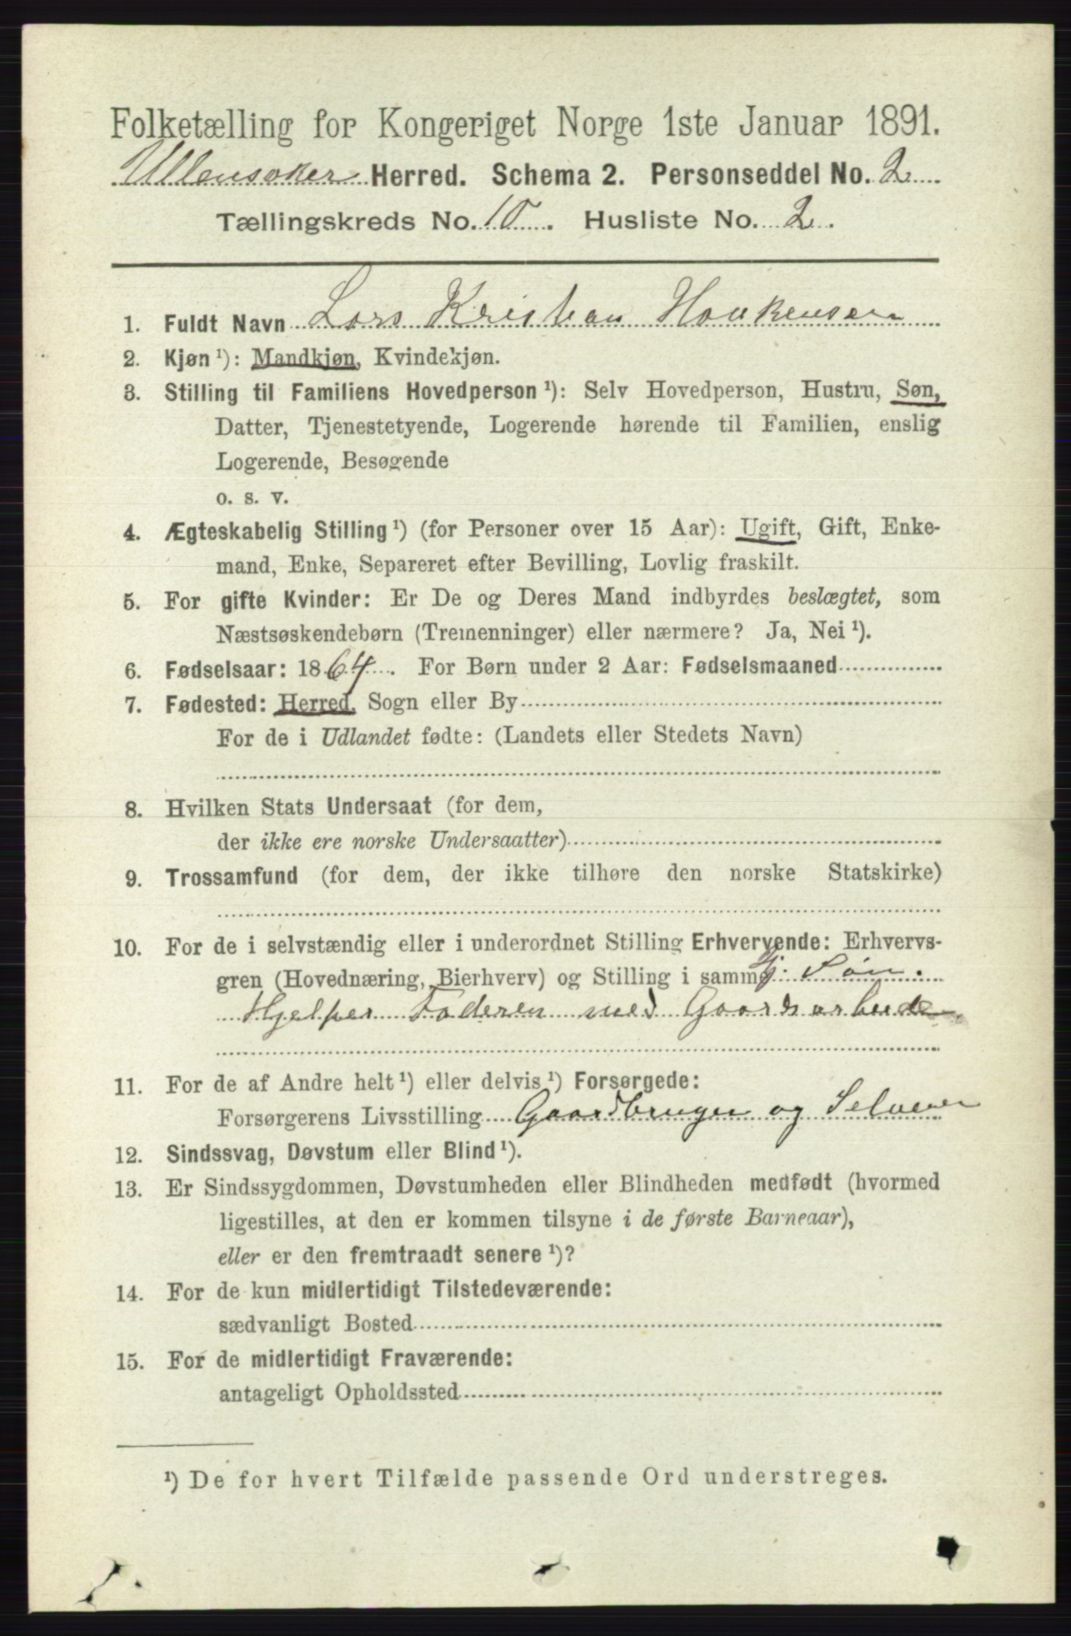 Folketælling for Kongeriget Norge 1ste Januar 1891.
Ullensaker Herred. Schema 2. Personseddel No. 2
Tællingskreds No. 10. Husliste No. 2.
1. Fuldt Navn Lars Kristian Haakensen
2. Kjøn ¹): Mandkjøn, Kvindekjøn.
3. Stilling til Familiens Hovedperson ¹): Selv Hovedperson, Hustru, Søn,
Datter, Tjenestetyende, Logerende hørende til Familien, enslig
Logerende, Besøgende
o. s. v.
4. Ægteskabelig Stilling ¹) (for Personer over 15 Aar): Ugift, Gift, Enke-
mand, Enke, Separeret efter Bevilling, Lovlig fraskilt.
5. For gifte Kvinder: Er De og Deres Mand indbyrdes beslægtet, som
Næstsøskendebørn (Tremenninger) eller nærmere? Ja, Nei ¹).
6. Fødselsaar: 1864. For Børn under 2 Aar: Fødselsmaaned
7. Fødested: Herred, Sogn eller By
For de i Udlandet fødte: (Landets eller Stedets Navn)
8. Hvilken Stats Undersaat (for dem,
der ikke ere norske Undersaatter)
9. Trossamfund (for dem, der ikke tilhøre den norske Statskirke)
10. For de i selvstændig eller i underordnet Stilling Erhvervende: Erhvervs-
gren (Hovednæring, Bierhverv) og Stilling i samme Gj. Søn.
Hjelper Faderen med Gaardsarbeide
11. For de af Andre helt ¹) eller delvis ¹) Forsørgede:
Forsørgerens Livsstilling Gaardbruger og Selveier
12. Sindssvag, Døvstum eller Blind ¹).
13. Er Sindssygdommen, Døvstumheden eller Blindheden medfødt (hvormed
ligestilles, at den er kommen tilsyne i de første Barneaar),
eller er den fremtraadt senere ¹)?
14. For de kun midlertidigt Tilstedeværende:
sædvanligt Bosted
15. For de midlertidigt Fraværende:
antageligt Opholdssted
¹) De for hvert Tilfælde passende Ord understreges.